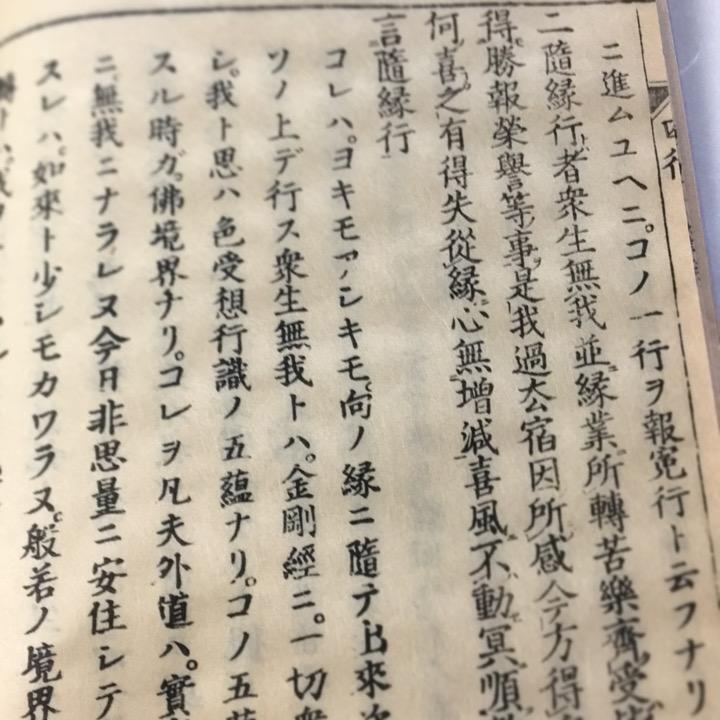 ニ進ムユヘニ。コノ一行ヲ報寃行ト云フナリ
二隨縁行者衆生無我並縁業所轉苦樂齊受
得勝報榮譽等事是我過去宿因所感今方得
何喜之有得失從縁心無増減喜風不動冥順
言隨縁行
コレハ。ヨキモアシキモ。向ノ縁ニ隨テ出來
ソノ上デ行ス衆生無我トハ。金剛經ニ。一切衆
シ。我ト思ハ色受想行識ノ五蘊ナリ。コノ五蘊
スル時ガ。佛境界ナリ。コレヲ凡夫外道ハ。實
ニ。無我ニナラレヌ今日非思量ニ安住シテ
スレハ。如來ト少シモカワラヌ。般若ノ境界